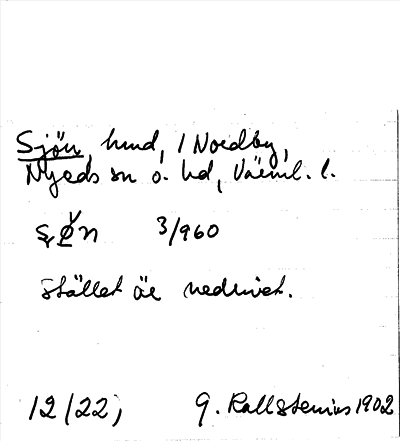 Sjön hmd, 1 Nordby,
Nyeds sn o. hd, Värml. l.
3/960
stället är nedrivet.
12/22; G. Kallstenius 1902